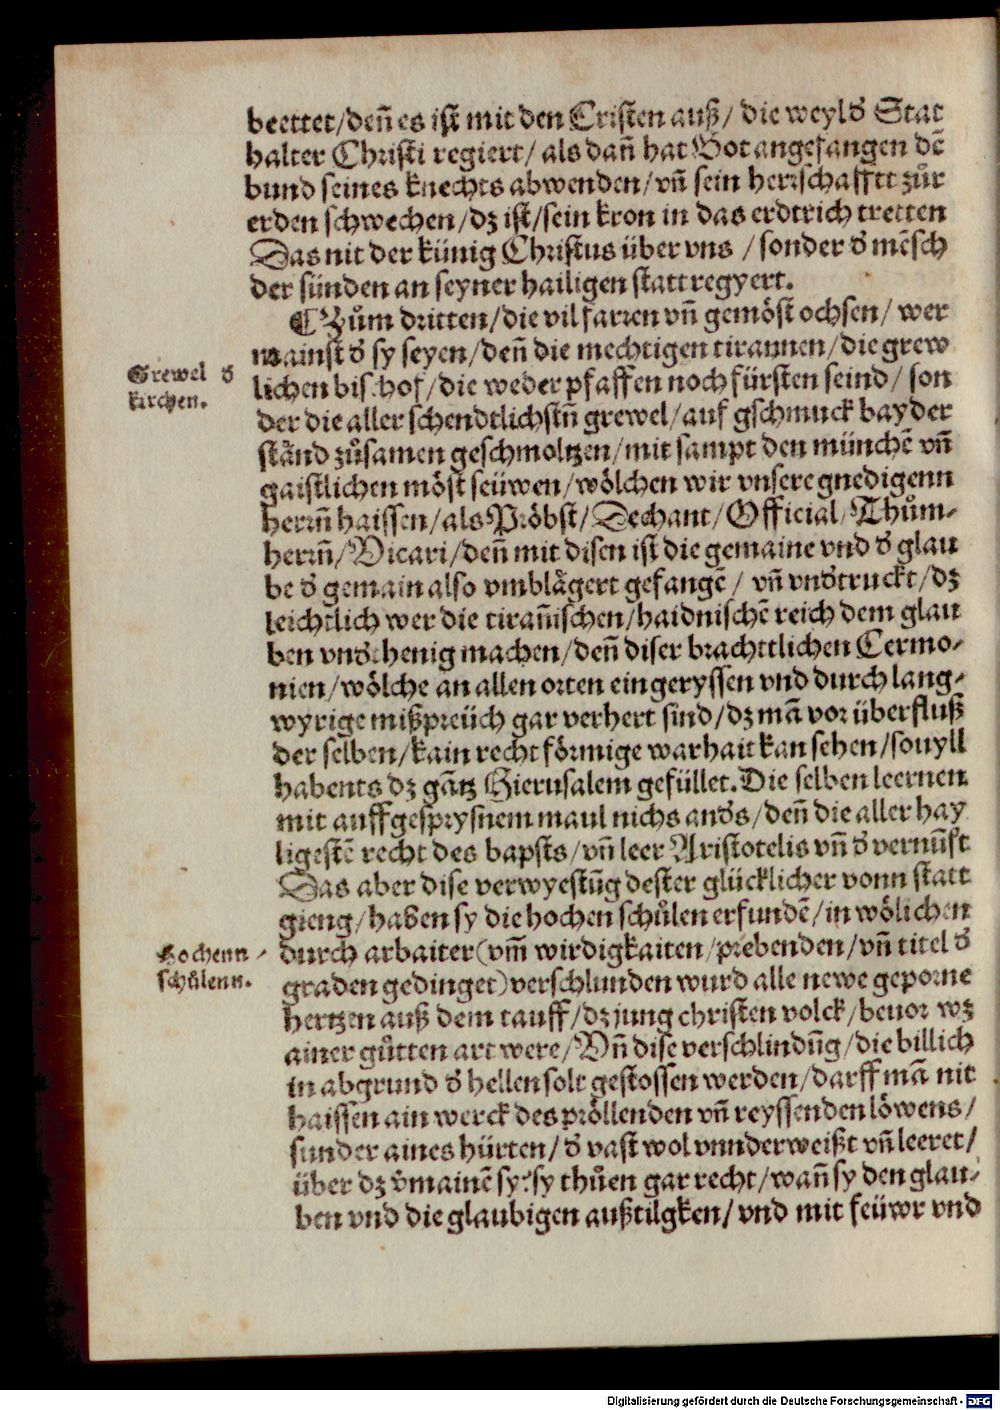 beettet/deñ es ist mit den Cristen auß/ die weyl d̕ Stat
halter Christi regiert/ als dañ hat Got angefangen dē
bund seines knechts abwenden/vñ sein herrschafftt zůr
erden schwechen/dz ist/sein kron in das erdtrich tretten
Das nit der künig Christus über vns / sonder d̕ mēsch
der sünden an seyner hailigen statt regyert.
¶Zům dritten/die vil farren vñ gemöst ochsen/ wer
mainst d̕ sy seyen/deñ die mechtigen tirannen/die grew
Grewel d̕
kirchen.
lichen bischof/die weder pfaffen noch fürsten seind/ son
der die aller schendtlichstñ grewel/auf gschmuck bayder
ständ zůsamen geschmoltzen/mit sampt den münchē vñ
gaistlichen möst seüwen/wölchen wir vnsere gnedigenn
herrñ haissen/als Pröbst/Dechant/Official/Thům-
herrñ/Vicari/deñ mit disen ist die gemaine vnd d̕ glau
be d̕ gemain also vmblägert gefangē/ vñ vnd̕truckt/dz
leichtlich wer die tirañischen/haidnischē reich dem glau
ben vnd̕thenig machen/deñ diser brachttlichen Cermo-
nien/wölche an allen orten eingeryssen vnd durch lang-
wyrige mißpreüch gar verhert sind/dz mā vor überfluß
der selben/kain recht förmige warhait kan sehen/souyll
habents dz gātz Hierusalem gefüllet. Die selben leernen
mit auffgesprysnem maul nichs and̕s/deñ die aller hay
ligestē recht des bapsts/vñ leer Aristotelis vñ d̕ vernūft
Das aber dise verwyestūg dester glücklicher vonn statt
gieng/haben sy die hochen schůlen erfundē/in wölichen
Hochenn-
schůlenn.
durch arbaiter(vm̃ wirdigkaiten/prebenden/vñ titel d̕
graden gedinget)verschlunden wurd alle newe geporne
hertzen auß dem tauff/dz jung christen volck/beuor wz
ainer gůtten art were/Vñ dise verschlindūg/die billich
in abgrund d̕ hellen solt gestossen werden/darff mā nit
haissen ain werck des pröllenden vñ reyssenden löwens/
sunder aines hürten/d̕ vast wol vnnderweißt vñ leeret/
über dz v̕mainē sy: sy thůen gar recht/wañ sy den glau-
ben vnd die glaubigen außtilgken/vnd mit feüwr vnd
Digitalisierung gefördert durch die Deutsche Forschungsgemeinschaft - DFG